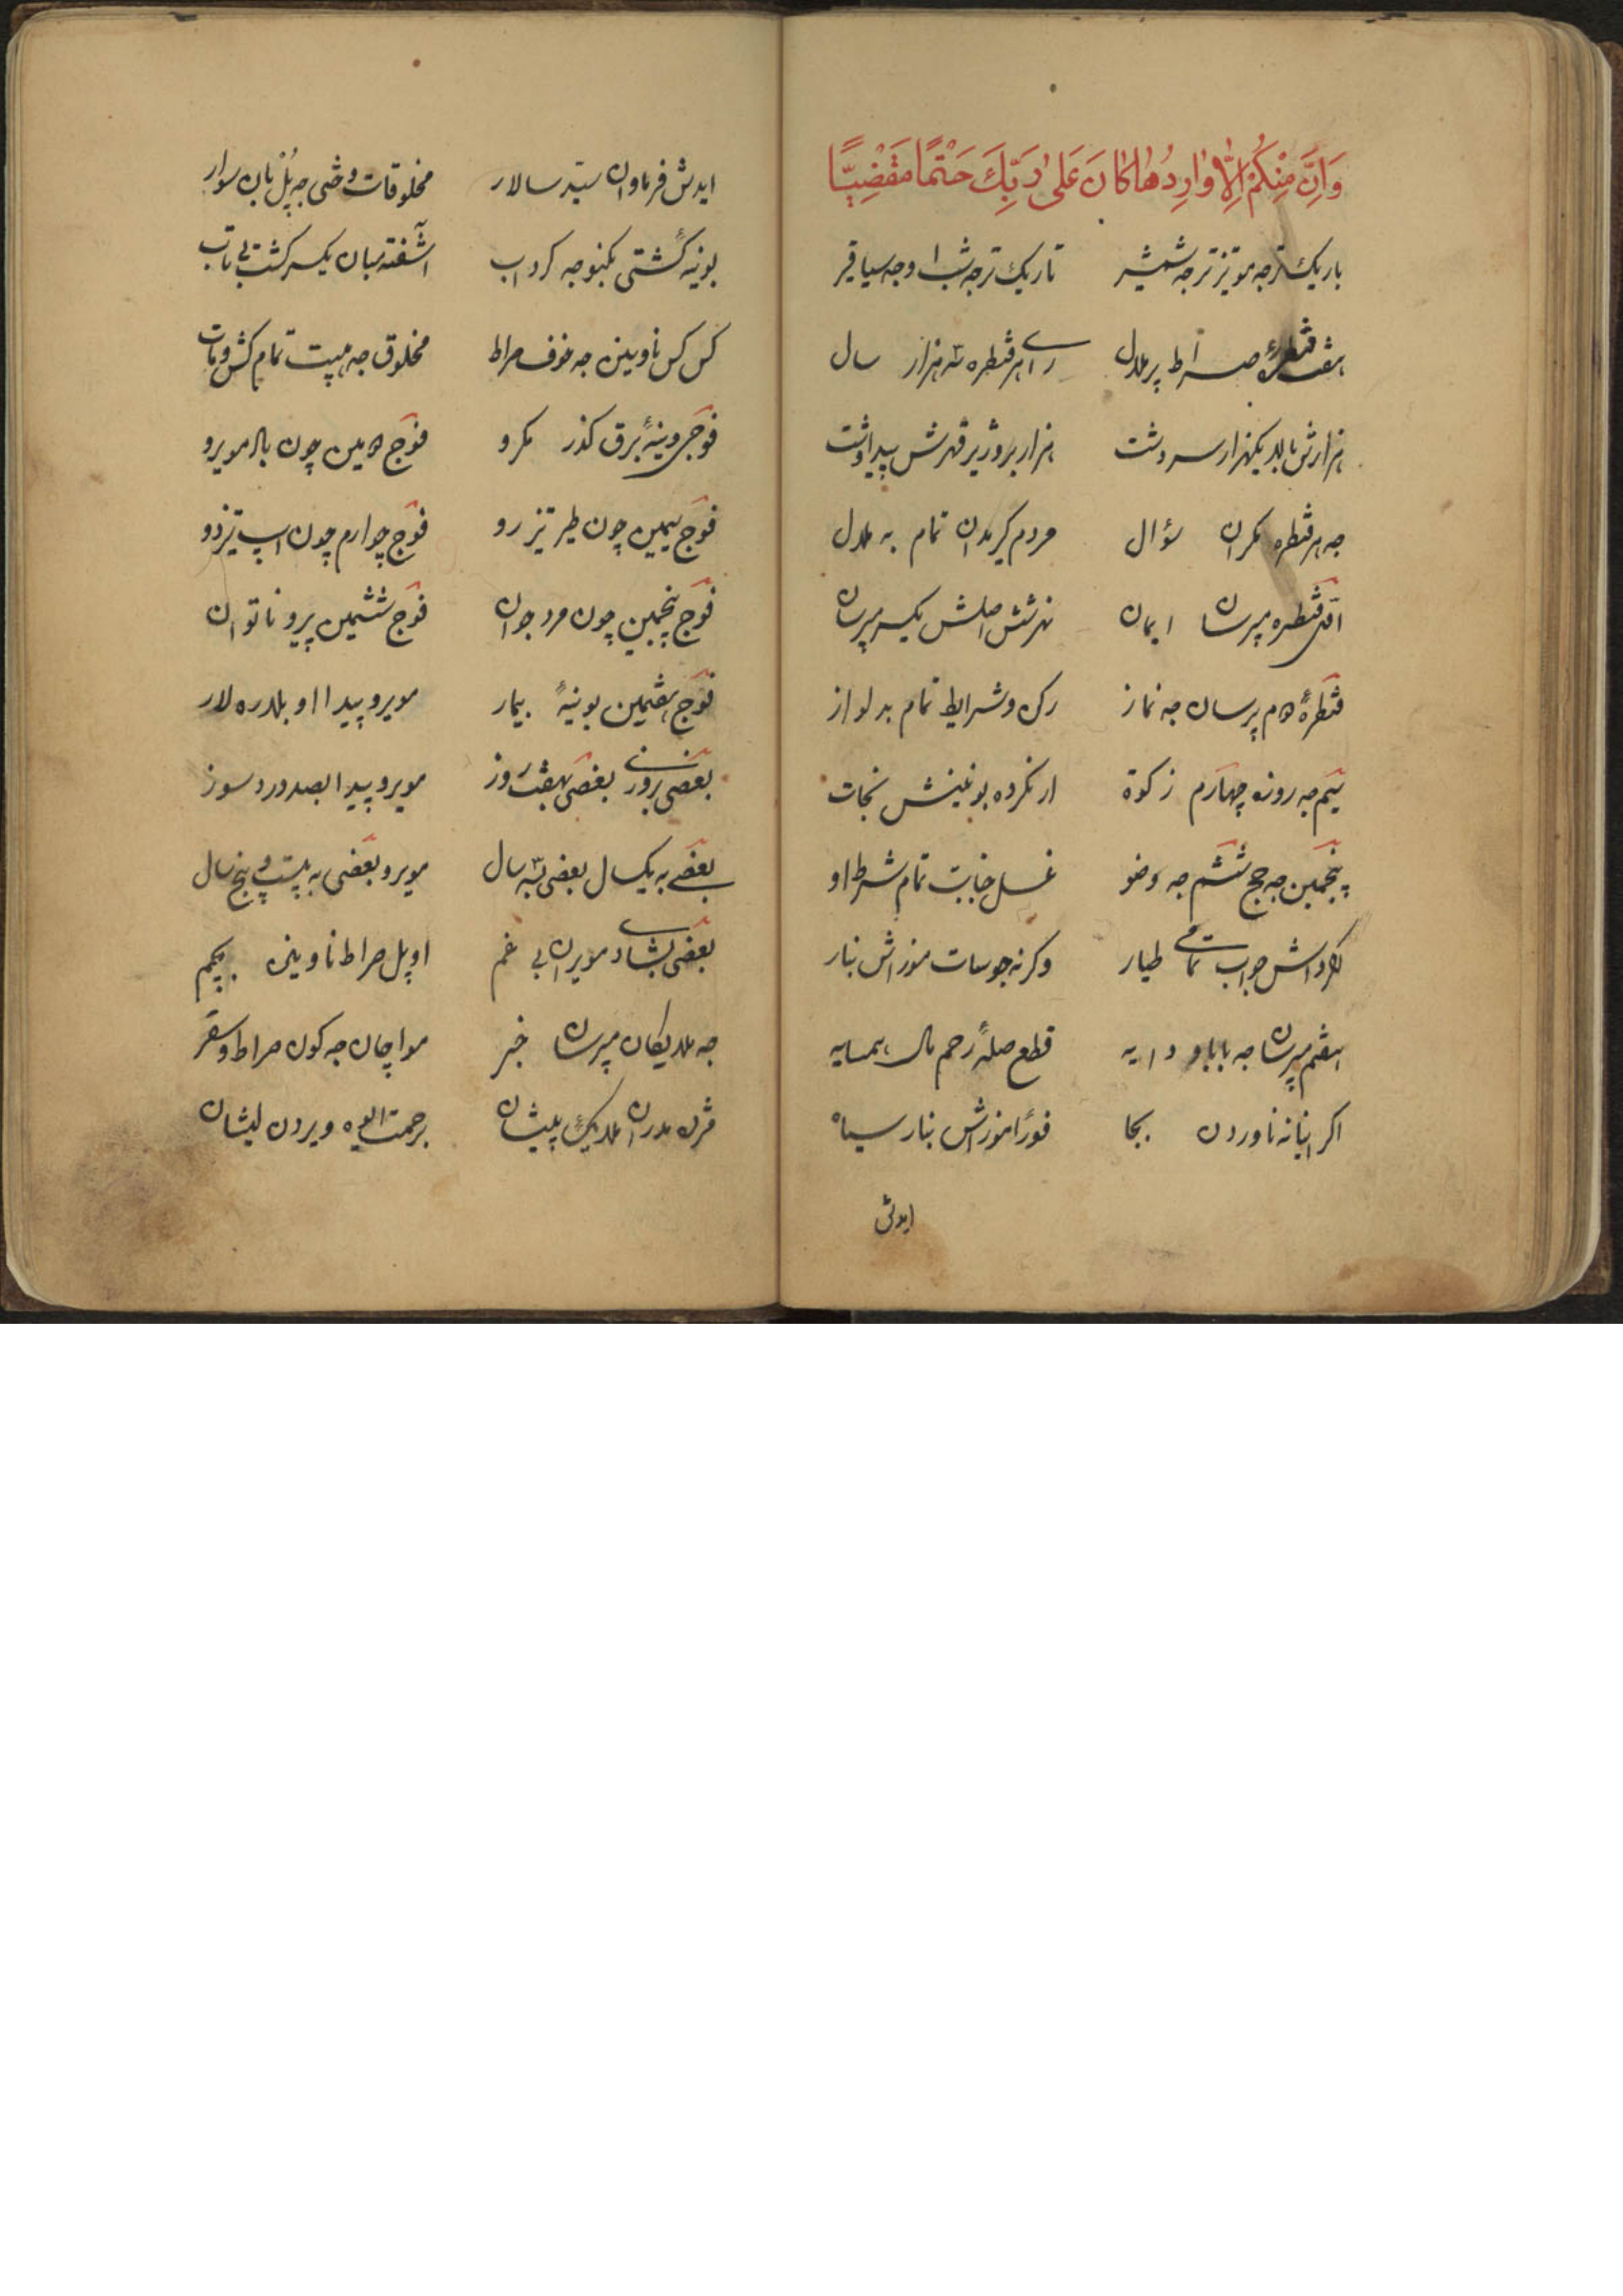 وَاِنَّ مِنْكُمْ اِلاّٰ وٰارِدُهٰا كٰانَ عَلىٰ رَبِّكَ حَتْمًا مَقْضِيّاً
باریک تر جه مو تیز تر جه شمشیر تاریک تر جه شو وجه سیاقیر
هفت قنطرهٔ صراط پر ملال رای هر قنطره سه هزار سال
هزارش بالا یکهزار سر وشت هزار بروژیر قهرش پیدا وشت
جه هر قنطره مکران سؤال مردم گیر مدان تمام به ملال
اوّل قنطره مپرسان ایمان نهر شش اصلش یکسر مپرسان
قنطرهٔ دوم پرسان جه نماز رکن و شرایط تمام بدلواز
سیّم جه روزه چهارم زکوة ار نکرده بو نینش نجات
پنجمین جه حج ششم جه وضو غسل جنابت تمام شرط او
جواب تمامی طیار وگرنه جوسات موزاش بنار
هفتم مپرسان جه بابا و دایه قطع صلهٔ رحم مال همسایه
اگر اینانه ناوردن بجا فوراً موزاش بنار سیاه
ایدش
ایدش فرماوان سیّد سالار مخلوقات وختی جه پُل بان سوار
بوینهٔ کشتی بکنو جه گرداب آشفته مبان یکسر گشت بی تاب
کس کس ناوینن جه خوف صراط مخلوق جه هیبت تمام کش و مات
فوجی وینهٔ برق گذر مکرو فوج دومین چون بال مویرو
فوج سیمین چون طیر تیز رو فوج چوارم چون اسپ تیزدو
فوج پنجمین چون مرد جوان فوج ششمین پیر و ناتوان
فوج هفتمین بوینهٔ بیمار مویرو پیدا او بلدره لار
بعضی روزی بعضی هفت روز مویرو پیدا بصد درد سوز
بعضی به یک سال بعضی سه سال مویرو بعضی به بیست و پنج سال
بعضی بشادی مویران بی غم او پل صراط ناوینن بچم
جه ملایکان مپرسان خبر مواچان جه کون صراط و سقر
مژده مدران ملایک پیشان برحمت الله ویردن لیشان